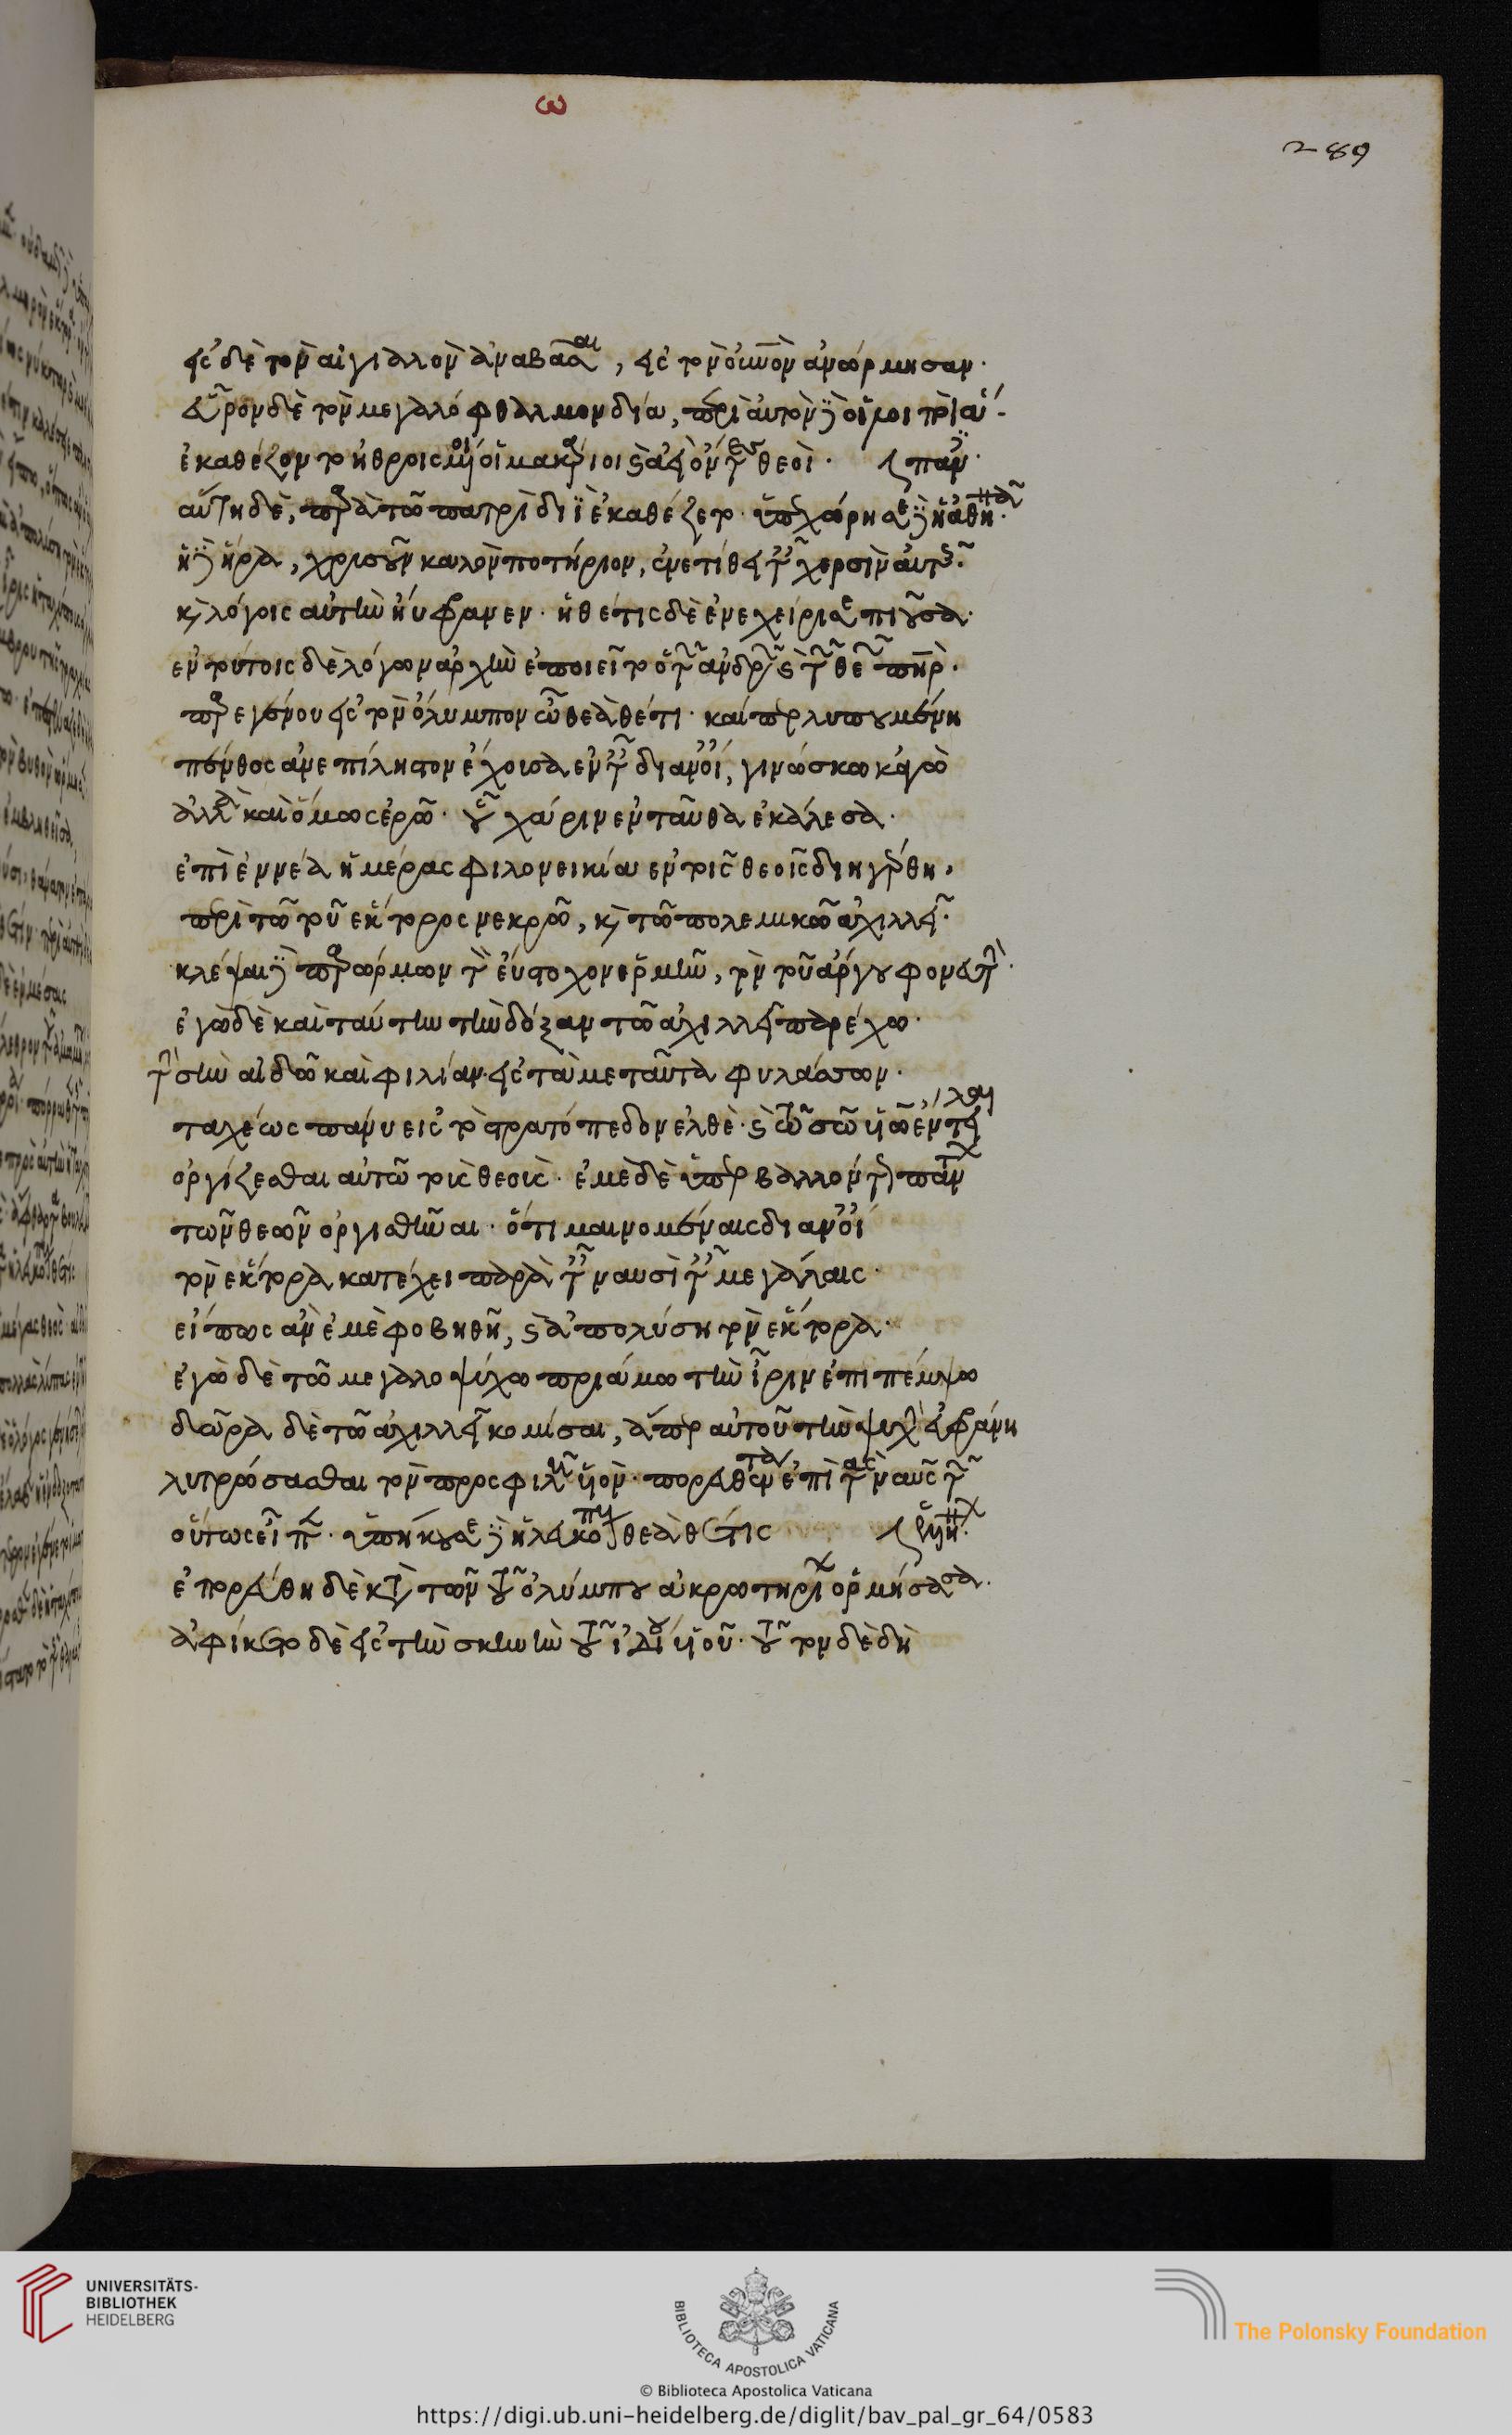 ω
289
εἰς δὲ τὸν αἰγιαλὸν ἀναβᾶσαι, εἰς τὸν οὐνὸν ἀνώρμησαν.
εὗρον δὲ τὸν μεγαλόφθαλμον δία, περὶ αὐτὸν δὲ οἱ
ἐκαθέζοντο ἠθροισμένοι οἱ μακάριοι καὶ ἀεὶ ὄντες θεοὶ. πάντες
αὕτη δὲ, παρὰ τῶ πατρὶ διῒ ἐκαθέζετο. ὑπεχώρησε δὲ ἡ ἀθηνᾶ.
ἡ δὲ ἥρα, χρυσοῦν καλὸν ποτήριον, ἐνετίθει ταῖς χερσὶν αὐτῆς.
καὶ λόγοις αὐτὴν ηὔφρανεν. ἡ θέτις δὲ ἐνεχείρισε πιοῦσα.
ἐν τούτοις δὲ λόγων ἀρχὴν ἐποιεῖτο ὁ τῶν ἀνδρῶν καὶ τῶν θεῶν πηρ.
παρεγένου εἰς τὸν ὄλυμπον ὦ θεὰ θέτι. καίπερ λυπουμένη
πένθος ἀνεπίληστον ἔχουσα ἐν τῆ διανοία, γινώσκω κἀγὼ
ἀλλὰ καὶ ὅμως ἐρῶ. οὗ χάριν ἐνταῦθα ἐκάλεσα.
ἐπὶ ἐννέα ἡμέρας φιλονεικία ἐν τοῖς θεοῖς διηγέρθη.
περὶ τῶ τοῦ ἕκτορος νεκρῶ, καὶ τῶ πολεμικῶ ἀχιλλεῖ.
κλέψαι δὲ παρώρμων τὸν εὔστοχον ἑρμῆν, τὸν τοῦ ἄργου φονευτὴν.
ἐγὼ δὲ καὶ ταύτην τὴν δόξαν τῶ ἀχιλλεῖ παρέχω.
τὴν σὴν αἰδῶ καὶ φιλίαν. εἰς τὰ μεταῦτα φυλάσσων.
ταχέως πάνυ εἰς τὸ στρατόπεδον ἐλθὲ. καὶ τῶ σῶ υἱῶ ἔντειλαι
ὀργίζεσθαι αὐτῶ τοὺς θεοὺς. ἐμὲ δὲ ὑπερβαλλόντως πάντων
τῶν θεῶν ὀργισθῆναι. ὅτι μαινομέναις διανοίαις
τὸν ἕκτορα κατέχει παρὰ ταῖς ναυσὶ ταῖς μεγάλαις.
εἴ πως ἂν ἐμὲ φοβηθῆ, καὶ ἀπολύση τὸν ἕκτορα.
ἐγὼ δὲ τῶ μεγαλοψύχω πριάμω τὴν ἶριν ἐπιπέμψω
δῶρα δὲ τῶ ἀχιλλεῖ κομίσαι, ἅπερ αὐτοῦ τὴν ψυχὴν εὐφράνη
λυτρώσασθαι τὸν προσφιλῆ υἱὸν. πορευθέντα ἐπὶ τὰς ναῦς τῶν
οὕτως εἶπεν. ὑπήκουσε δὲ ἡ λευκόπους θεὰ θέτις ἑλλήνων.
ἐπορεύθη δὲ κατὰ τῶν τοῦ ὀλύμπου ἀκρωτηρίων ὁρμήσασα.
ἀφίκετο δὲ εἰς τὴν σκηνὴν τοῦ ἰδίου υἱοῦ. τοῦτον δὲ δὴ
UNIVERSITÄTS-
BIBLIOTHEK
HEIDELBERG
BIBLIOTECA APOSTOLICA VATICANA
The Polonsky Foundation
© Biblioteca Apostolica Vaticana
https://digi.ub.uni-heidelberg.de/diglit/bav_pal_gr_64/0583